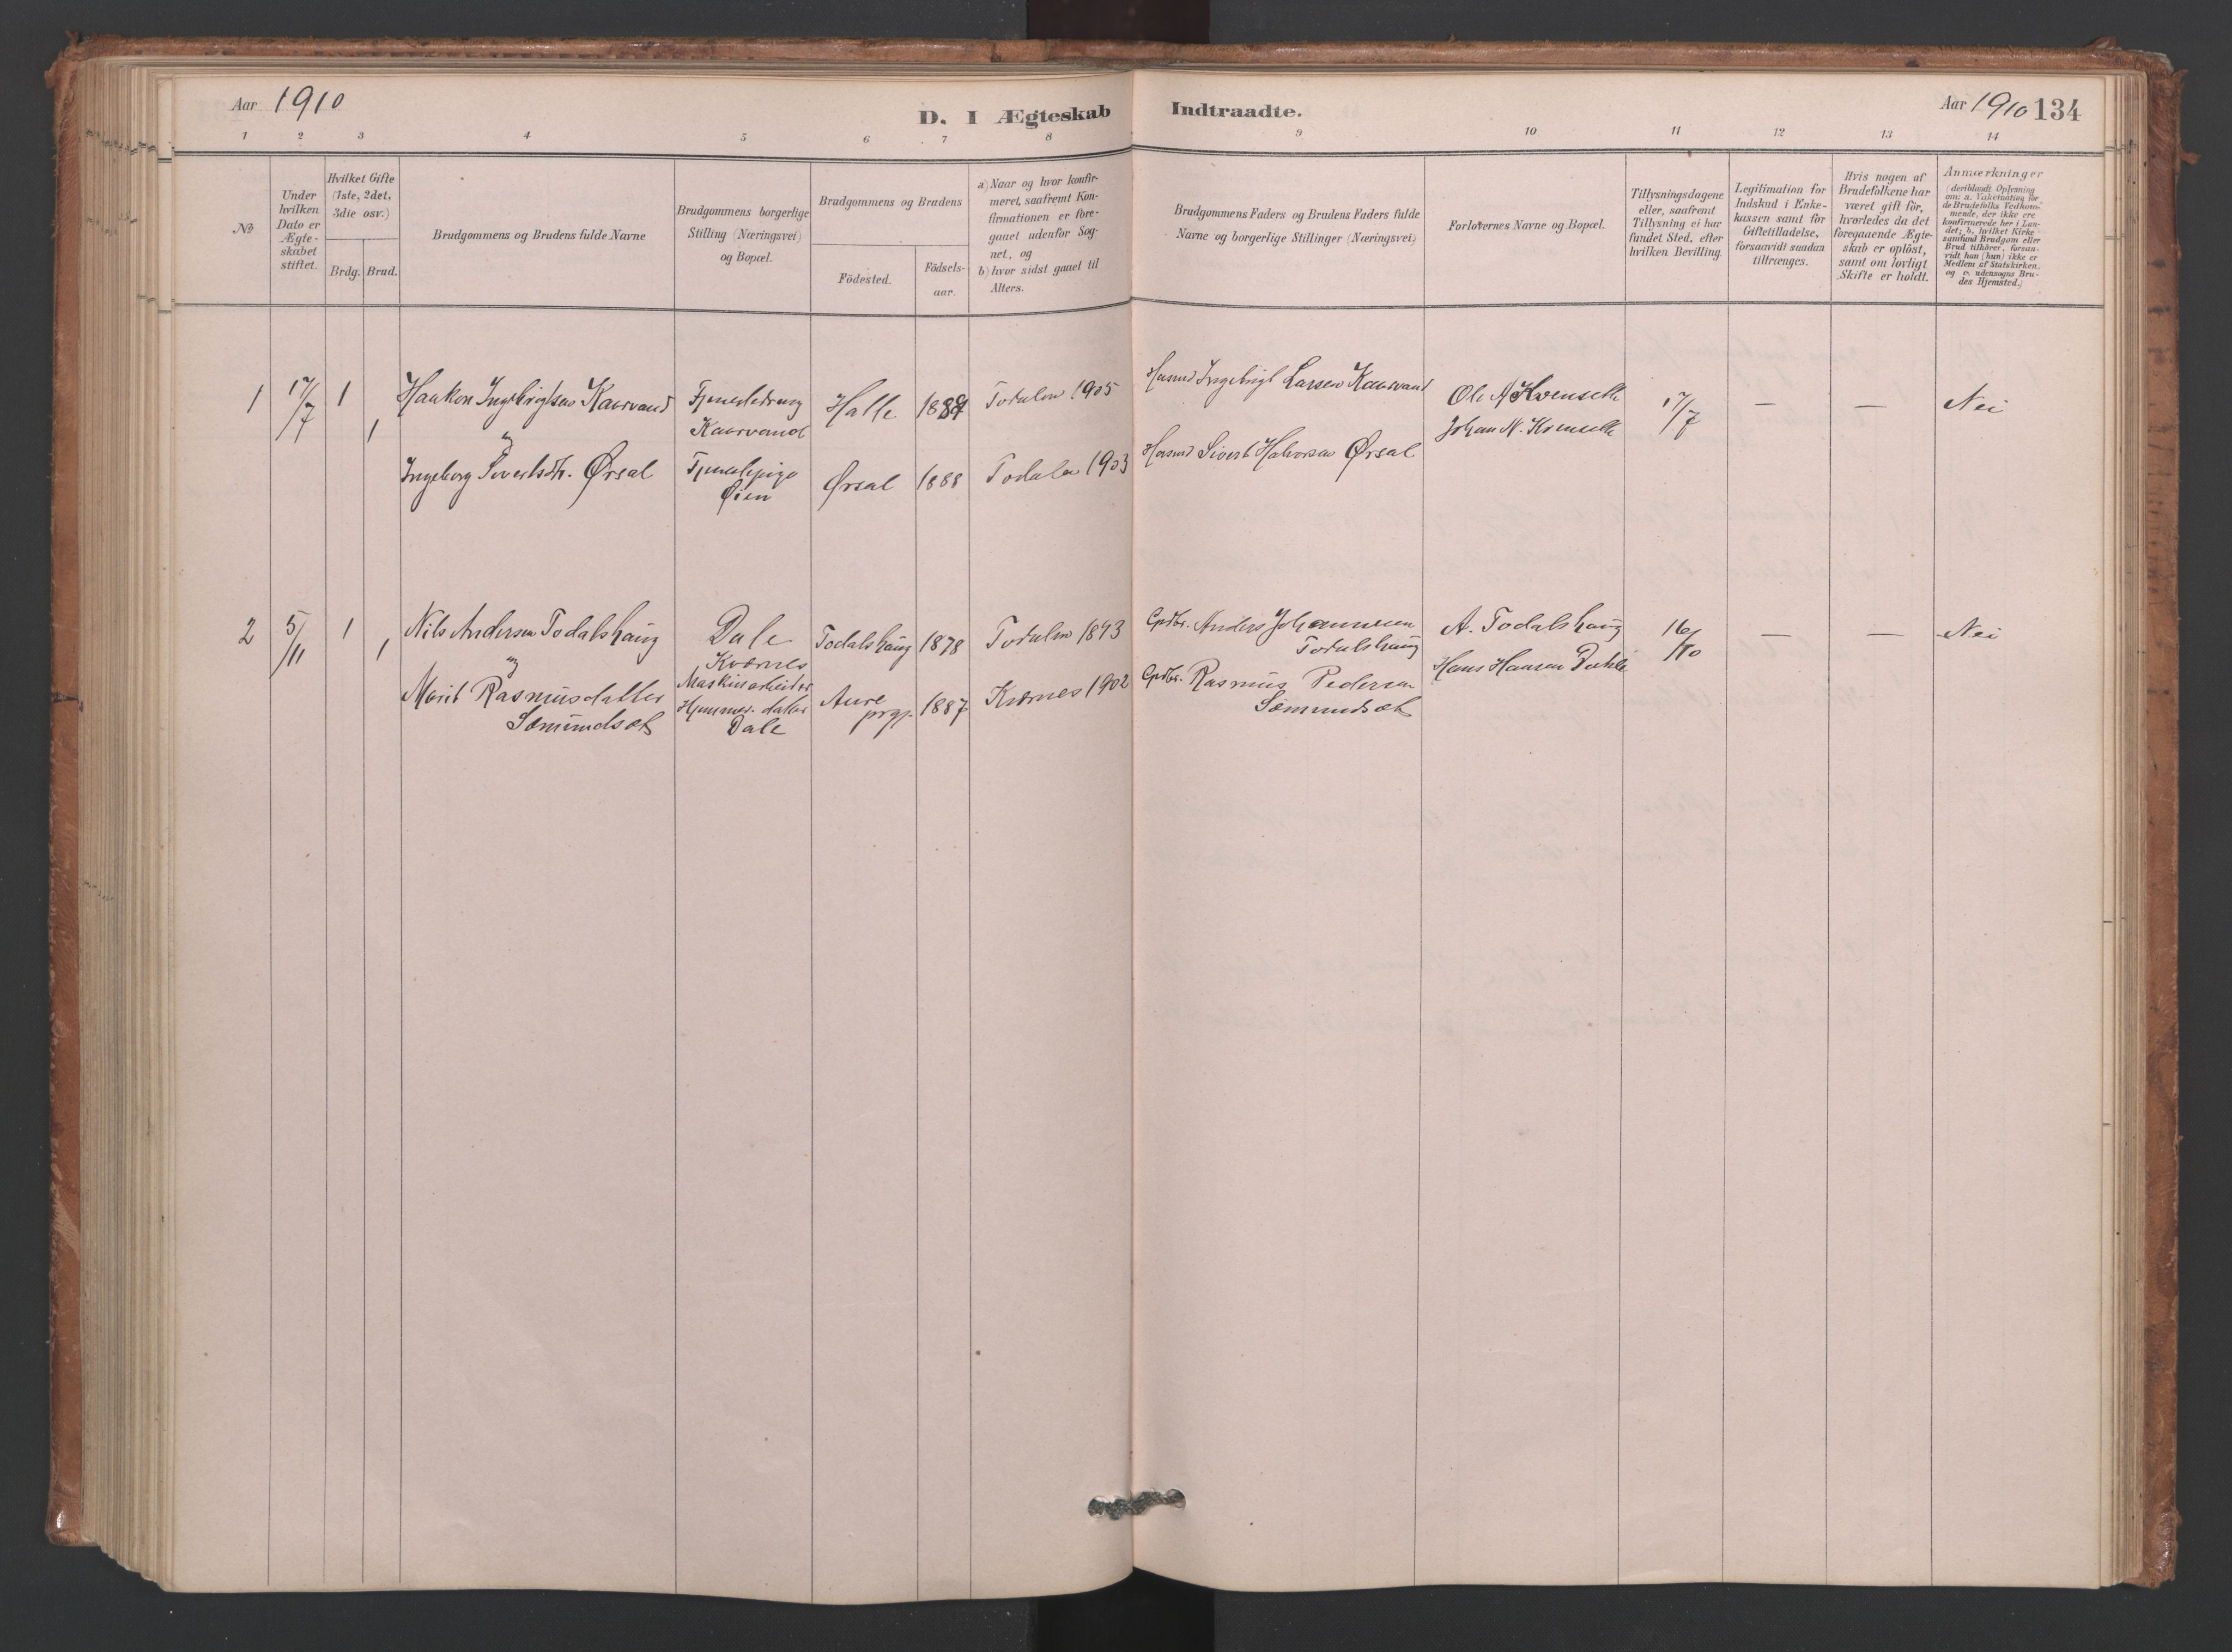 Aar 1910
D. I Ægteskab Indtraadte.
Aar 1910 134
1 2 3 4 5 6 7 8 9 10 11 12 13 14
No
Under
hvilken
Dato er
Ægte-
skabet
stiftet.
Hvilket Gifte
(1ste, 2det,
3die osv.)
Brdg. Brud.
Brudgommens og Brudens fulde Navne
Brudgommens borgerlige
Stilling (Næringsvei)
og Bopæl.
Brudgommens og Brudens
Födested.
Födsels-
aar.
a) Naar og hvor konfir-
meret, saafremt Kon-
firmationen er fore-
gaaet udenfor Sog-
net, og
b) hvor sidst gaaet til
Alters.
Brudgommens Faders og Brudens Faders fulde
Navne og borgerlige Stillinger (Næringsvei)
Forlovernes Navne og Bopæl.
Tillysningsdagene
eller, saafremt
Tillysning ei har
fundet Sted, efter
hvilken Bevilling.
Legitimation for
Indskud i Enke-
kassen samt for
Giftetilladelse,
forsaavidt saadan
tiltrænges.
Hvis nogen af
Brudefolkene har
været gift för,
hvorledes da det
foregaaende Ægte-
skab er oplöst,
samt om lovligt
Skifte er holdt.
Anmærkninger
(deriblandt Oplysning
om: a. Vakcination for
de Brudefolks Vedkom-
mende, der ikke ere
konfirmerede her i Lan-
det; b. hvilket Kirke-
samfund Brudgom eller
Brud tilhörer, forsaa-
vidt han (hun) ikke er
Medlem af Statskirken,
og c. udensogns Bru-
des Hjemsted.)
1 17/7 1 1
Haakon Ingebrigtsen Kaarvand
og
Ingeborg Sivertsdtr. Ørsal
Tjenestedreng
Kaarvand
Tjenestepige
Øien
Halle 1889
Ørsal 1888
Todalen 1905
Todalen 1903
Husmd Ingebrigt Larsen Kaarvand
Husmd Sivert Halvorsen Ørsal
Ole A Kvenseth
Johan N. Kvenseth
17/7 — — Nei
2 5/11 1 1
Nils Andersen Todalshaug
og
Marit Rasmusdatter
Sæmundsæt
Dale
Kvernes
Maskinarbeider
Hjemmev. datter
Dale
Todalshaug 1878
Aure
prgj. 1887
Todalen 1893
Kvernes 1902
Grdbr. Anders Johannesen
Todalshaug
Grdbr. Rasmus Pedersen
Sæmundsæt
A. Todalshaug
Hans Hansen
16/10 — — Nei